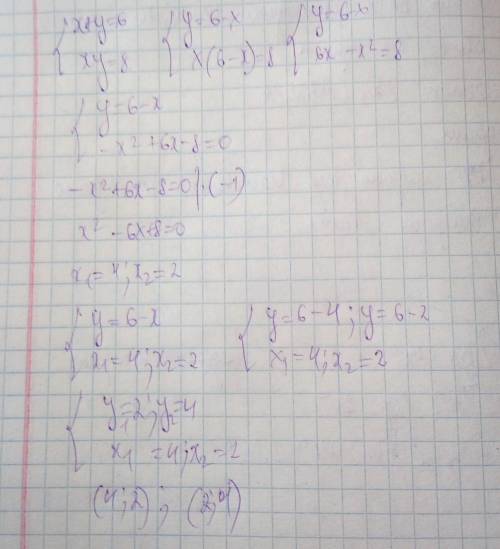 { x+y=6 { y=6-x { y=6-x
xy=8 x(6-x)=8 6x-x²=8
{ y=6-x
-x²+6x-8=0
-x²+6x-8=0 |·(-1)
x²-6x+8=0
x₁=4; x₂=2
{ y=6-x { y=6-4; y=6-2
x₁=4; x₂=2 x₁=4; x₂=2
{ y₁=2; y₂=4
x₁=4; x₂=2
(4;2); (2;4)